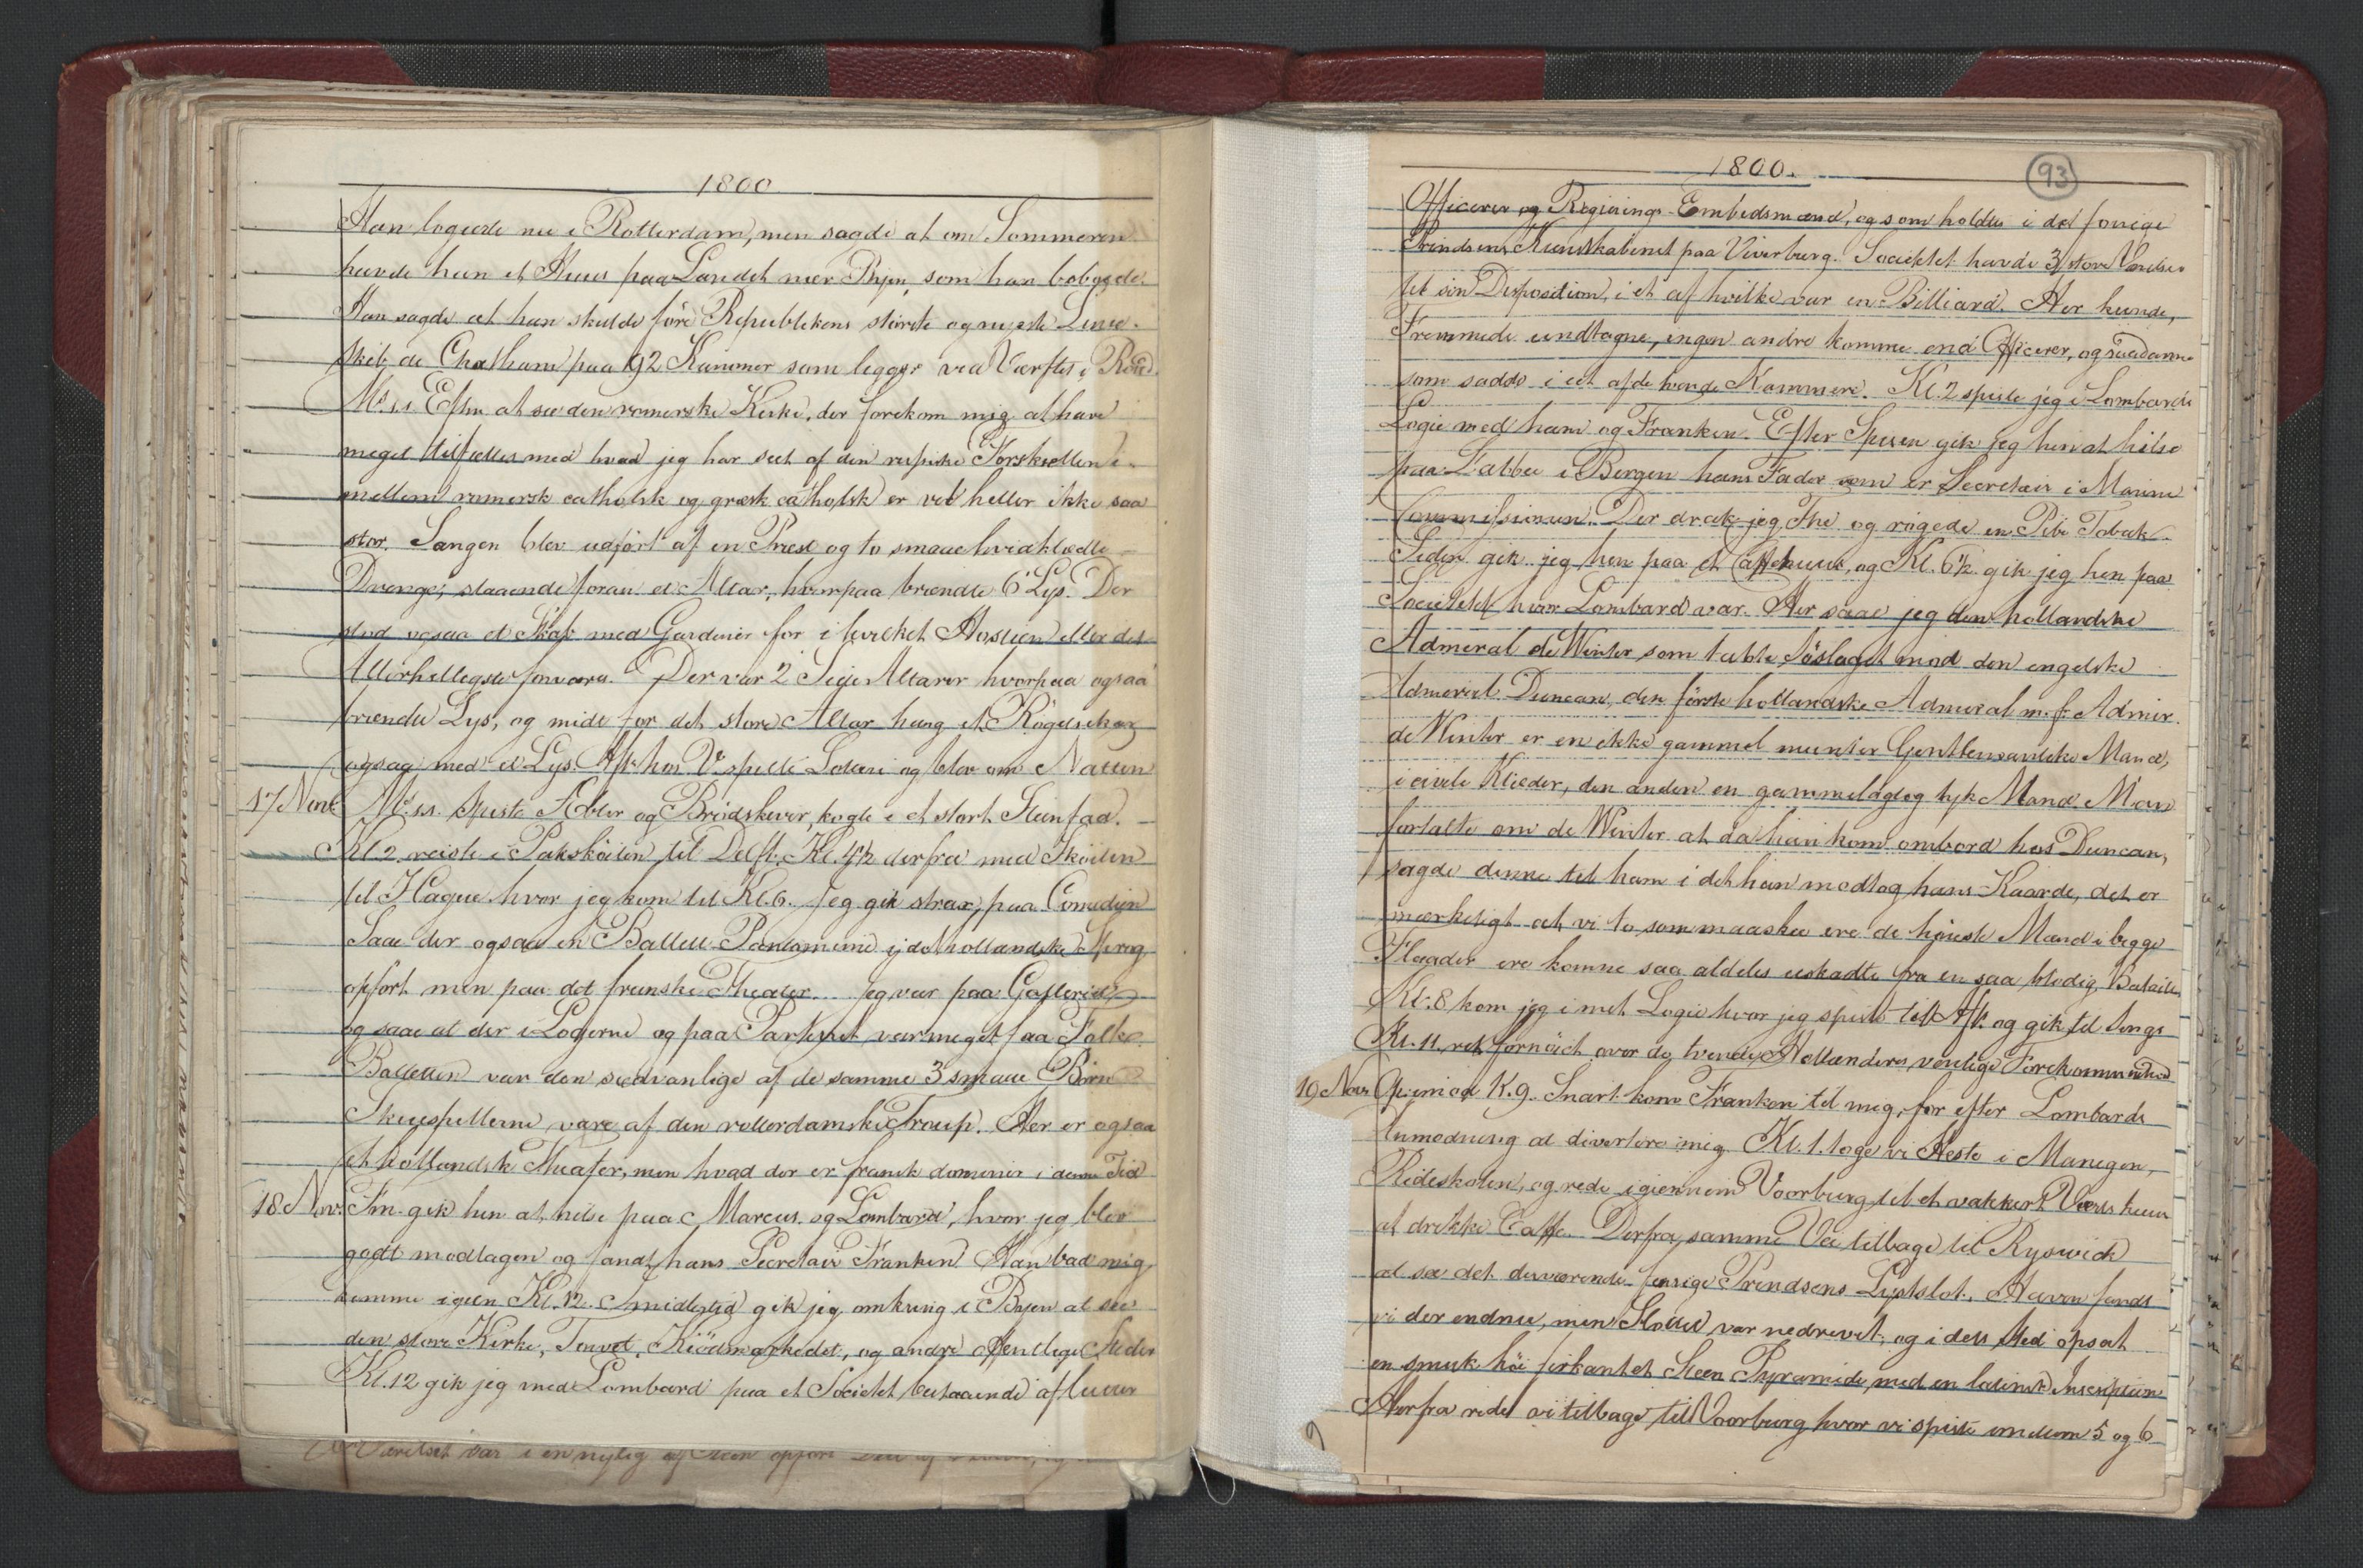 1800
Han logerte nu i Rotterdam, men sagde at om Sommeren
havde han et Huus paa Landet nær Byen, som han beboede.
Han sagde at han skulde före Republikens störste og nyeste Linie-
skib de Chatham paa 92 Kanoner som legger ved Værftet i Rott.
M. ss. Eftm at see den romerske Kirke, der forekom mig at have
meget tilfælles med hvad jeg har seet af den russiske Forskiellen i-
mellem romersk catholsk og græsk catholsk er vel heller ikke saa
stor. Sangen blev udfört af en Præst og to smaae hvidklædte
Drenge, staaende foran et Altar, hvorpaa brendte 6 Lys. Der
stod ogsaa et Skab med Gardiner for i hvilket Hostien eller det
Allerhelligste forvares. Der var 2 Side Altarer hvorpaa ogsaa
brendte Lys, og midt for det store Altar hang et Rögelsekar
ogsaa med et Lys. Aft. hos V. spillte Lotteri og blev om Natten
17 Nov. M. ss. spiste Æbler og Brödskiver, kogte i et stort Steenfad.
Kl. 2 reiste i Paksköiten til Delft, Kl. 4½ derfra med Sköiten
til Hague hvor jeg kom til Kl. 6. Jeg gik strax paa Comedien
Saae der ogsaa en Ballett Pantomime i det hollandske Sprog
opfört men paa det franske Theater. Jeg var paa Galleriet
og saae at der i Logerne og paa Parterret var meget faa Folk.
Balletten var den sædvanlige af de samme 3 smaae Börn
Skuespillerne vare af den rotterdamske Troup. Her er ogsaa
et hollandsk Theater, men hvad der er fransk dominer i denne Tid
18 Nov. Fm. gik hen at hilse paa Marcus og Lombard, hvor jeg blev
godt modtagen og fandt hans Secretair Franken Han bad mig
komme igien Kl. 12. Imidlertid gik jeg omkring i Byen at see
den store Kirke, Torvet, Kiödmarkedet, og andre offentlige Steder
Kl. 12 gik jeg med Lombard paa et Societet bestaaende af lutter
1800.
93
Officerer og Regierings-Embedsmænd, og som holdtes i det forrige
Prindsens Kunstkabinet paa Viverburg. Societetet havde 3 store Værelser
til sin Disposition, i et af hvilke var en Billiard. Her kunde,
Fremmede undtagne, ingen andre komme end Officerer, og saadanne
som sadde i et af de høye Kammere. Kl. 2 spiste jeg i Lombards
Logie med ham og Franken. Efter Spisen gik jeg hen at hilse
paa Labbe i Bergen hans Fader som er Secretair i Marine
Commissionen. Der drak jeg The og rögede en Pibe Tobak.
Siden gik jeg hen paa et Caffehuus, og Kl. 6½ gik jeg hen paa
Societetet hvor Lombard var. Her saae jeg den hollandske
Admiral de Winter som tabte Söslaget mod den engelske
Admiral Duncan, den förste hollandske Admiral m. fl. Admir.
de Winter er en ikke gammel munter Gentlemanlike Mand,
i civile Klæder, den anden en gammelagtig tyk Mand. Man
fortalte om de Winter at da han kom ombord hos Duncan,
sagde denne til ham i det han modtog hans Kaarde, det er
mærkeligt at vi to som maaskee ere de höieste Mænd i begge
Flaader ere komne saa aldeles uskadte fra en saa blodig Bataille
Kl. 8 kom jeg i mit Logie hvor jeg spiste til Aft. og gik til Sengs
Kl. 11, ret fornöiet over de tvende Hollænderes venlige Forekommenhed
19 Nov. Op imod K. 9. Snart kom Franken til mig, for efter Lombards
Anmodning at divertere mig. Kl. 1 toge vi Heste i Manegen,
Rideskolen, og rede igiennem Voorburg til et vakkert Vertshuus
at drikke Caffe. Derfra samme Vei tilbage til Ryswick
at see det derværende forrige Prindsens Lystslot. Haven fandt
vi der endnu, men Slottet var nedrevet, og i dets Sted opsat
en smuk höi firkantet Steen Pyramide med en latinsk Inscription
Herfra redet vi tilbage til Voorburg hvor vi spiste imellem 5 og 6